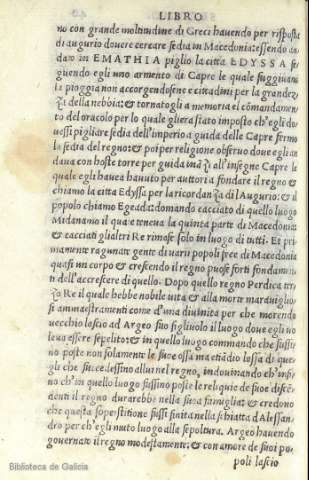 LIBRO
no con grande moltitudine di Greci havendo per risposta
di augurio dovere cercare sedia in Macedonia: essendo an
dato in EMATHIA piglio la citta EDYSSA se
guendo egli uno armento di Capre le quale fuggivano
la pioggia non accorgendosene e cittadini per la grandez
za della nebbia: & tornatogli a memoria el cōmandamen
to del oracolo per lo quale gliera stato imposto ch'egli do
vessi pigliare sedia dell'imperio a guida delle Capre fermo
la sedia del regno: & poi per religione observo dove egli an
dava con hoste torre per guida inãzi all'insegne Capre le
quale egli havea havuto per auttori a fondare il regno &
chiamo la citta Edyssa per la ricordanza di l'Augurio: & il
popolo chiamo Egeada: domando cacciato di quello luogo
Midanamo il quale teneva la quinta parte di Macedonia:
& cacciati gli altri Re rimase solo in luogo di tutti. Et pri
mamente ragunate gente di varii popoli fece di Macedonia
quasi un corpo & crescendo il regno puose forti fondamen
ti dell'accrescere di quello. Dopo quello regno Perdica ter
zo Re il quale hebbe nobile vita & alla morte maraviglio
si ammastramenti come d'una divinita per che morendo
vecchio lascio ad Argeo suo figliuolo il luogo dove egli vo
leva essere sepelito: & in quello luogo commando che fussi
no poste non solamente le suoe ossa ma etiãdio lossa di que
gli che succedessino allui nel regno, indovinando ch'insi
no ch'in quello luogo fussino poste le reliquie de suoe discē
denti il regno durarebbe nella sua famiglia: & credono
che questa sopestitione fussi finita nella schiatta d'Alessan
dro per ch'egli muto luogo alla sepoltura. Argeo havendo
governato il regno modestamente: & con amore de suoi po
poli lascio
Biblioteca de Galicia